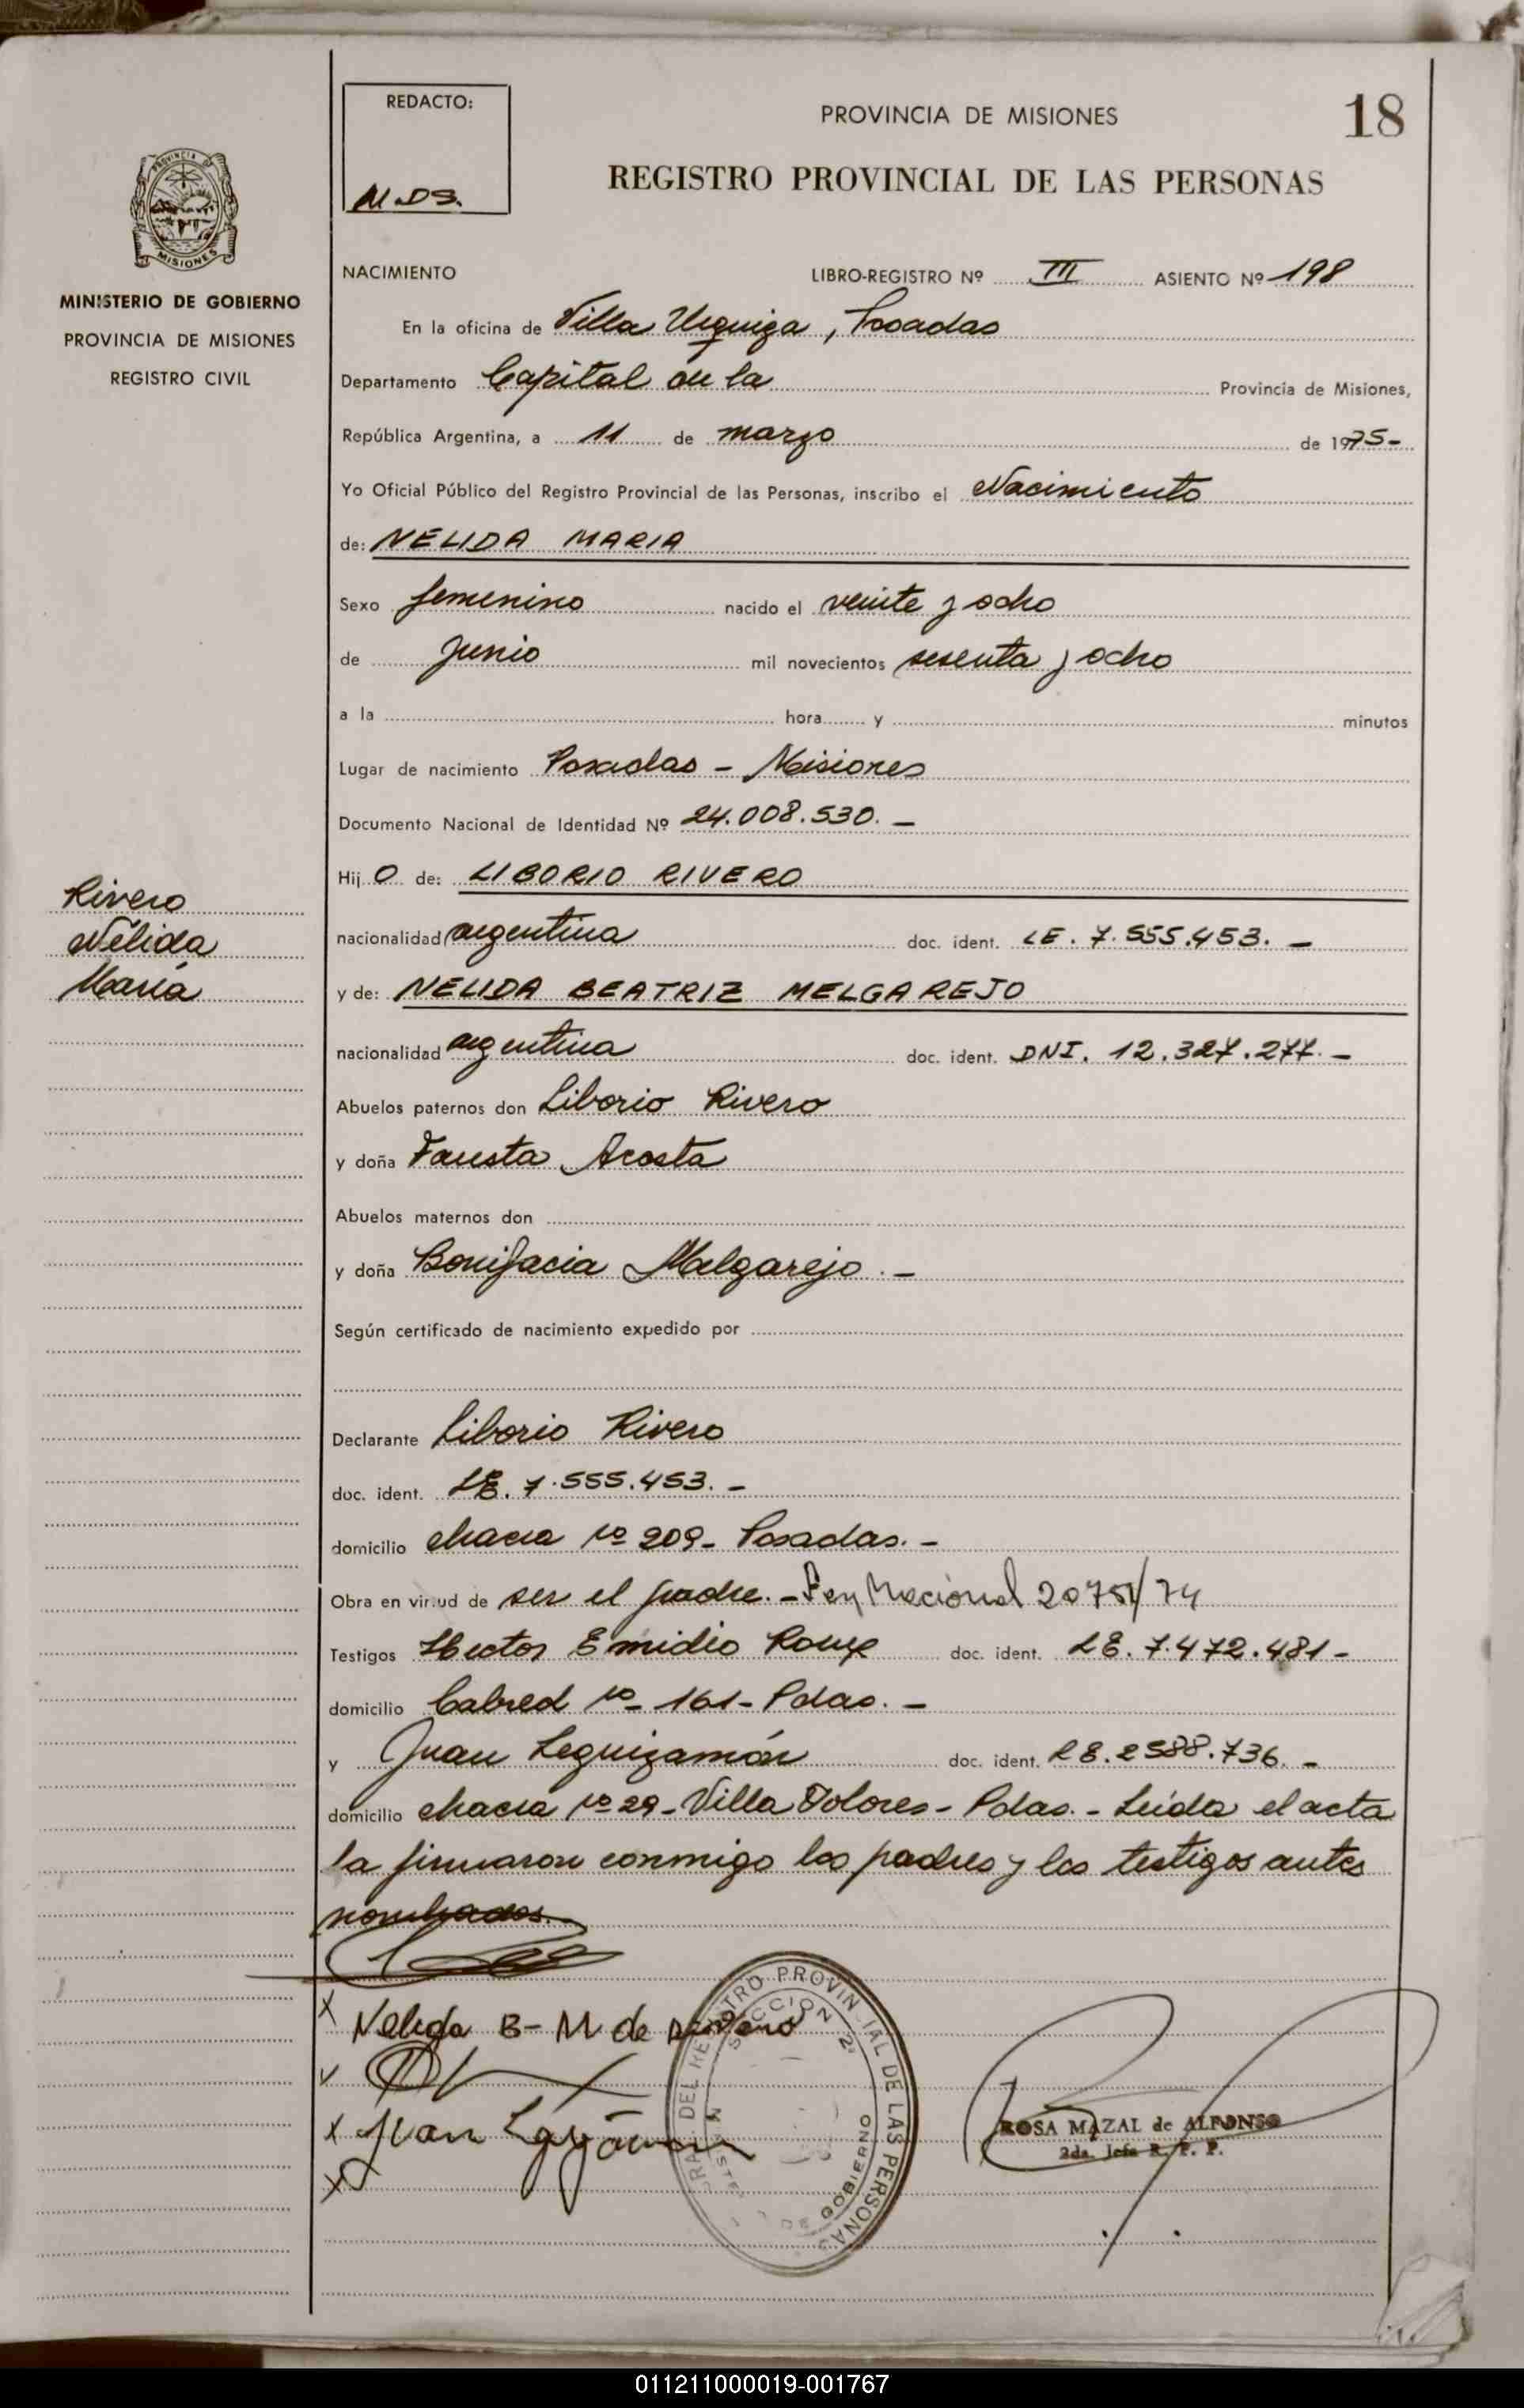 REDACTO:
M.DS.
PROVINCIA DE MISIONES
18
REGISTRO PROVINCIAL DE LAS PERSONAS
PROVINCIA DE
MISIONES
MINISTERIO DE GOBIERNO
PROVINCIA DE MISIONES
REGISTRO CIVIL
NACIMIENTO LIBRO-REGISTRO Nº III ASIENTO Nº 198
En la oficina de Villa Urquiza, Posadas
Departamento Capital de la Provincia de Misiones,
República Argentina, a 11 de marzo de 1975-
Yo Oficial Público del Registro Provincial de las Personas, inscribo el Nacimiento
de: NELIDA MARIA
Sexo femenino nacido el veinte y ocho
de junio mil novecientos sesenta y ocho
a la hora y minutos
Lugar de nacimiento Posadas - Misiones
Documento Nacional de Identidad Nº 24.008.530.-
Hij o de: LIBORIO RIVERO
Rivero
Nélida
María
nacionalidad argentina doc. ident. LE. 7.555.453.-
y de: NELIDA BEATRIZ MELGAREJO
nacionalidad argentina doc. ident. DNI. 12.327.277.-
Abuelos paternos don Liborio Rivero
y doña Fausta Acosta
Abuelos maternos don
y doña Bonifacia Melgarejo.-
Según certificado de nacimiento expedido por
Declarante Liborio Rivero
doc. ident. LE. 7.555.453.-
domicilio chacra nº 209- Posadas.-
Obra en virtud de ser el padre.- Ley Nacional 20751/74
Testigos Hector Emidio Roux doc. ident. LE. 7.472.481-
domicilio Cabred nº 161- Pdas.-
y Juan Leguizamón doc. ident. LE. 2588.736.-
domicilio chacra nº 29- Villa Dolores- Pdas.- Leída el acta
la firmaron conmigo los padres y los testigos antes
nombrados.
X Nelida B- M de Rivero
X Juan
X
REGISTRO PROVINCIAL DE LAS PERSONAS
SECCION 2ª
DE GOBIERNO
ROSA MAZAL de ALFONSO
2da. Jefa R. P. P.
011211000019-001767